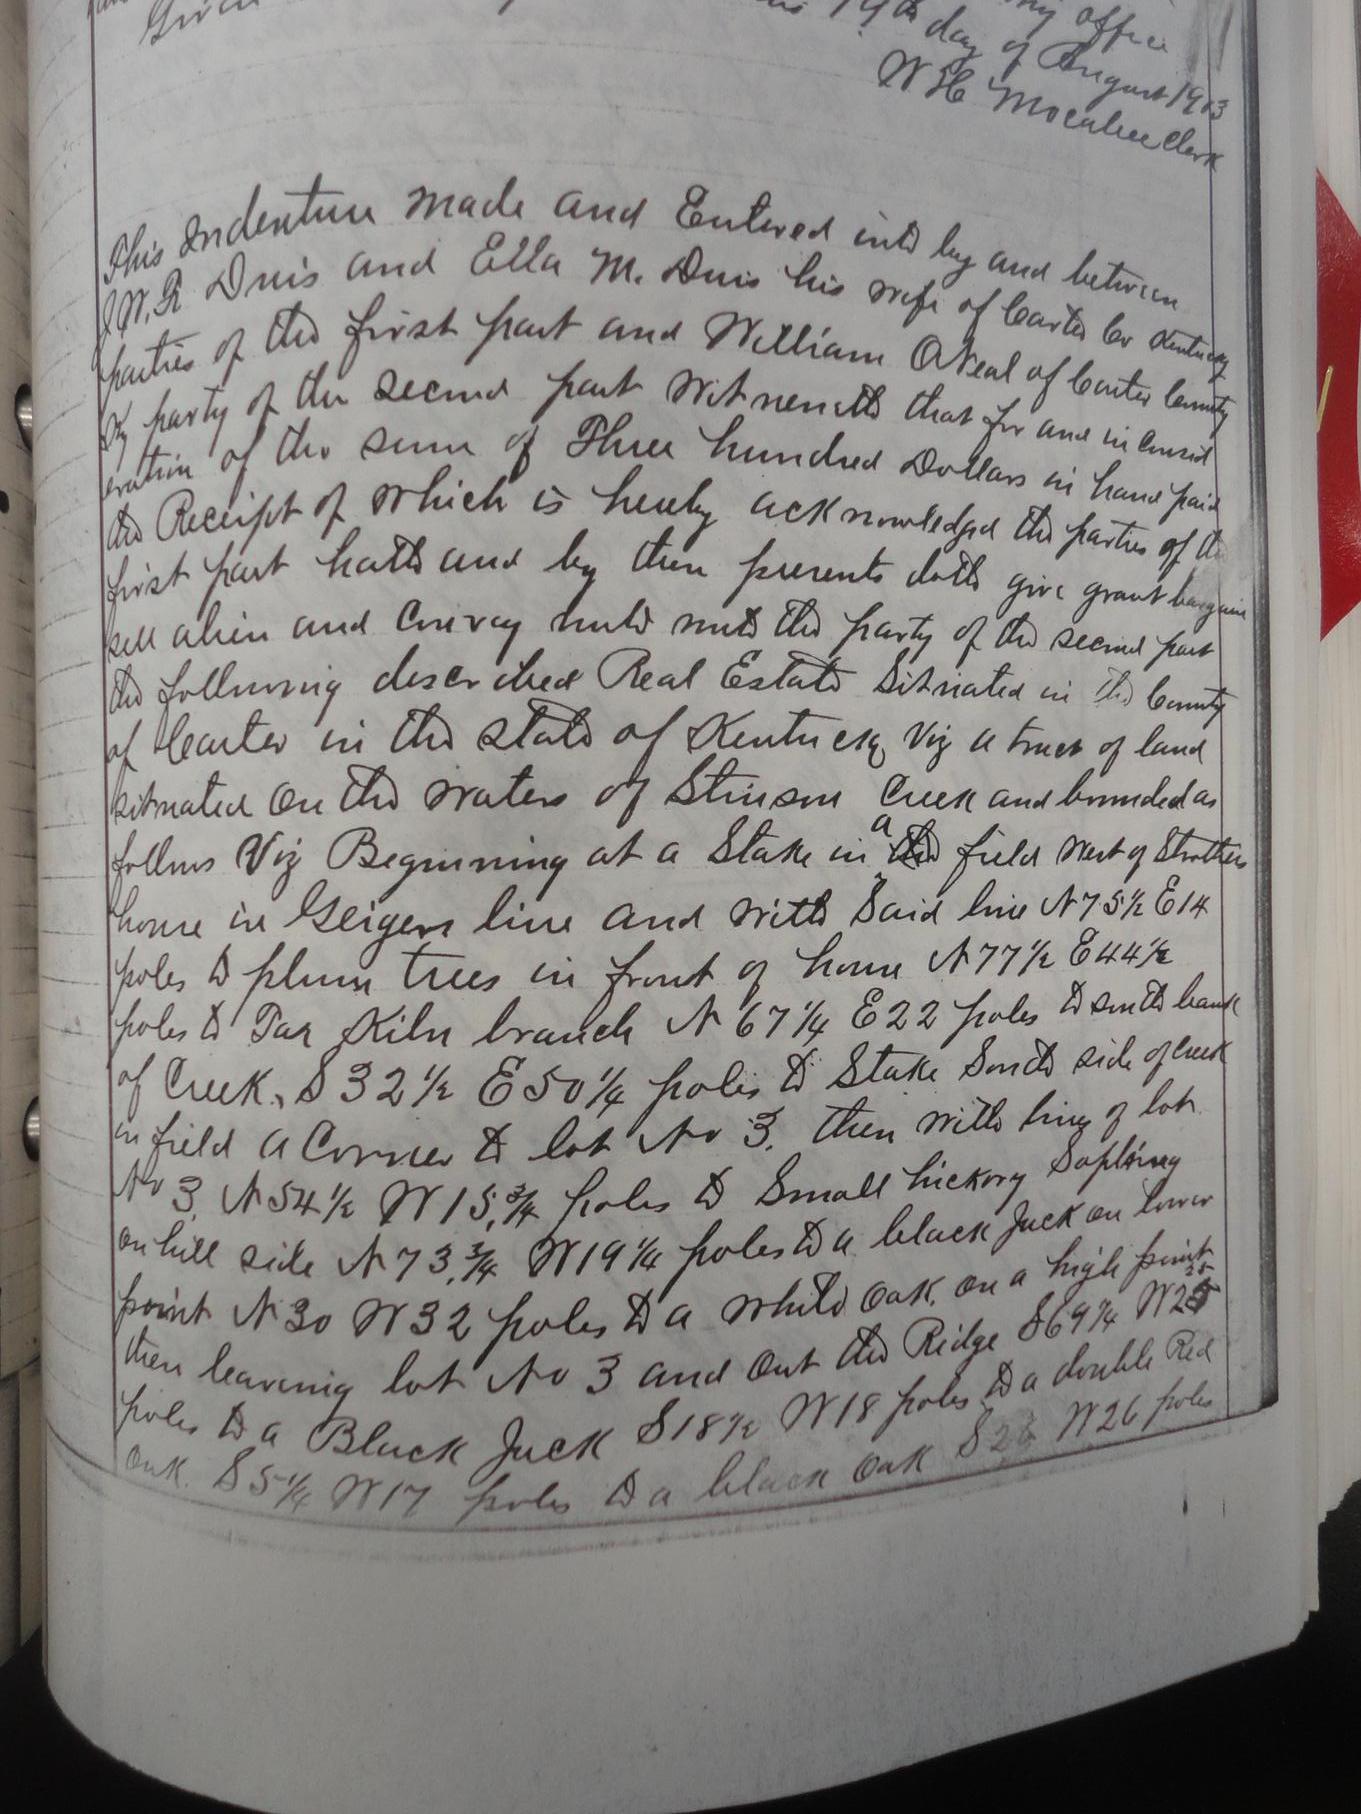 Given my office
19th day of August 1913
W H Mocabee Clerk
This Indenture made and Entered into by and between
J.W.R Duis and Ella M. Duis his wife of Carter Co Kentucky
parties of the first part and William ONeal of Carter County
Ky party of the second part Witnesseth that for and in consid
eration of the sum of Three hundred Dollars in hand paid
the Receipt of which is hereby acknowledged the parties of the
first part hath and by these presents doth give grant bargain
sell alien and Convey unto unto the party of the second part
the following described Real Estate Situated in the County
of Carter in the state of Kentucky Viz a tract of land
situated on the waters of Stinson Creek and bounded as
follows Viz Beginning at a Stake in a field West of Strothers
house in Geigers line and with Said line N 75½ E 14
poles to plum trees in front of house N 77½ E 44½
poles to Tar Kiln branch N 67¼ E 22 poles to south bank
of Creek, S 32½ E 50¼ poles to Stake South side of Creek
in field a Corner to lot No 3, then with lines of lot
No 3, N 54½ W 15,¾ poles to Small hickory Sapling
on hill side N 73,¾ W 19¼ poles to a black Jack on lower
point N 30 W 32 poles to a white oak, on a high point
then leaving lot No 3 and out the Ridge S 69¼ W 25
poles to a Black Jack S 18½ W 18 poles to a double Red
oak. S 5¼ W 17 poles to a black oak S W 26 poles